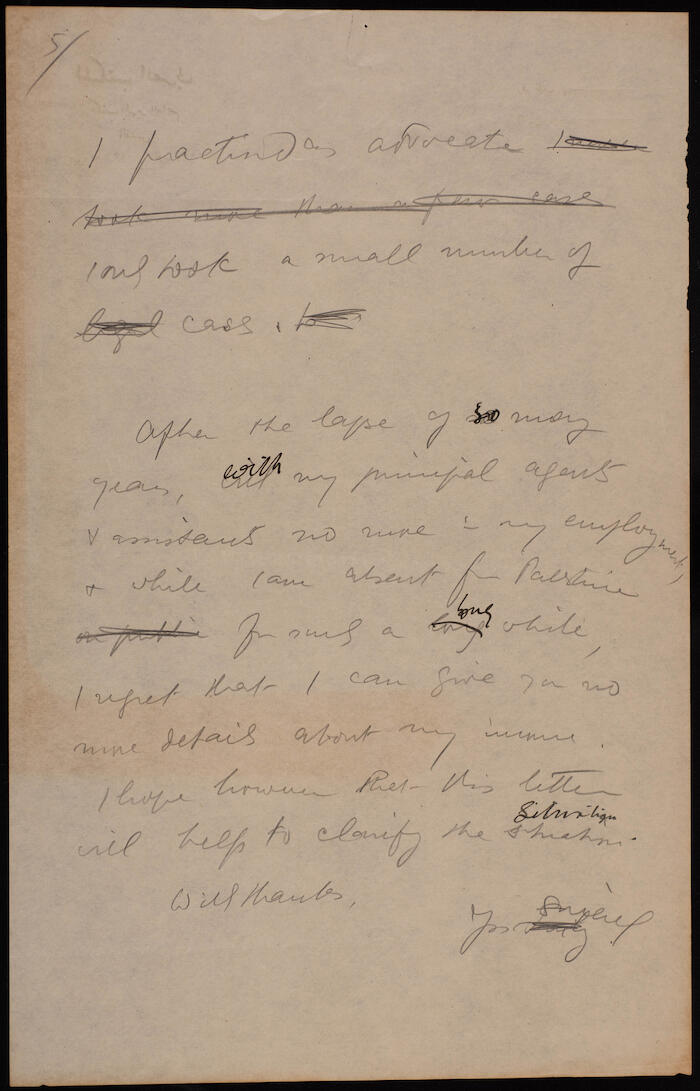 5/
I practised as advocate I
took more than a few cases
and took a small number of
legal cases. to
After the lapse of so many
years, with my principal agents
& assistants no more in my employment,
& while I am absent from Palestine
for such a long long while,
I regret that I can give you no
more details about my income.
I hope however that this letter
situation
will help to clarify the situation.
With thanks,
Yrs sincerely